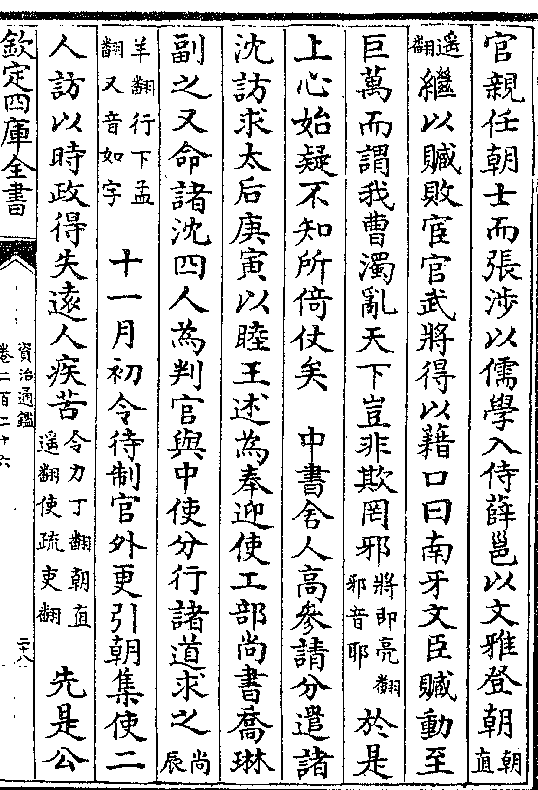 官親任朝士而張涉以儒學入侍薛邕以文雅登朝朝直
遥翻繼以贓敗宦官武將得以藉口曰南牙文臣贓動至
巨萬而謂我曹濁亂天下豈非欺罔邪將即亮翻邪音耶於是
上心始疑不知所倚仗矣 中書舍人高參請分遣諸
沈訪求太后庚寅以睦王述為奉迎使工部尚書喬琳
副之又命諸沈四人為判官與中使分行諸道求之尚辰
羊翻行下孟翻又音如字 十一月初令待制官外更引朝集使二
人訪以時政得失逺人疾苦令力丁翻朝直遥翻使疏吏翻 先是公
欽定四庫全書
資治通鑑
卷二百二十六
二十八